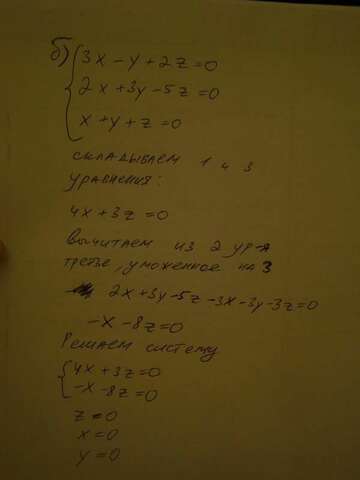 б) 3x - y + 2z = 0
2x + 3y - 5z = 0
x + y + z = 0
складываем 1 и 3
уравнения:
4x + 3z = 0
вычитаем из 2 ур-я
третье, уможенное на 3
2x + 3y - 5z - 3x - 3y - 3z = 0
-x - 8z = 0
Решаем систему
4x + 3z = 0
-x - 8z = 0
z = 0
x = 0
y = 0